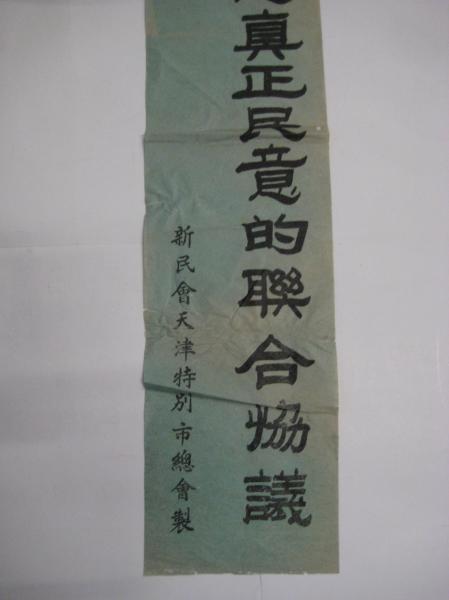 真正民意的聯合協議
新民會天津特別市總會製